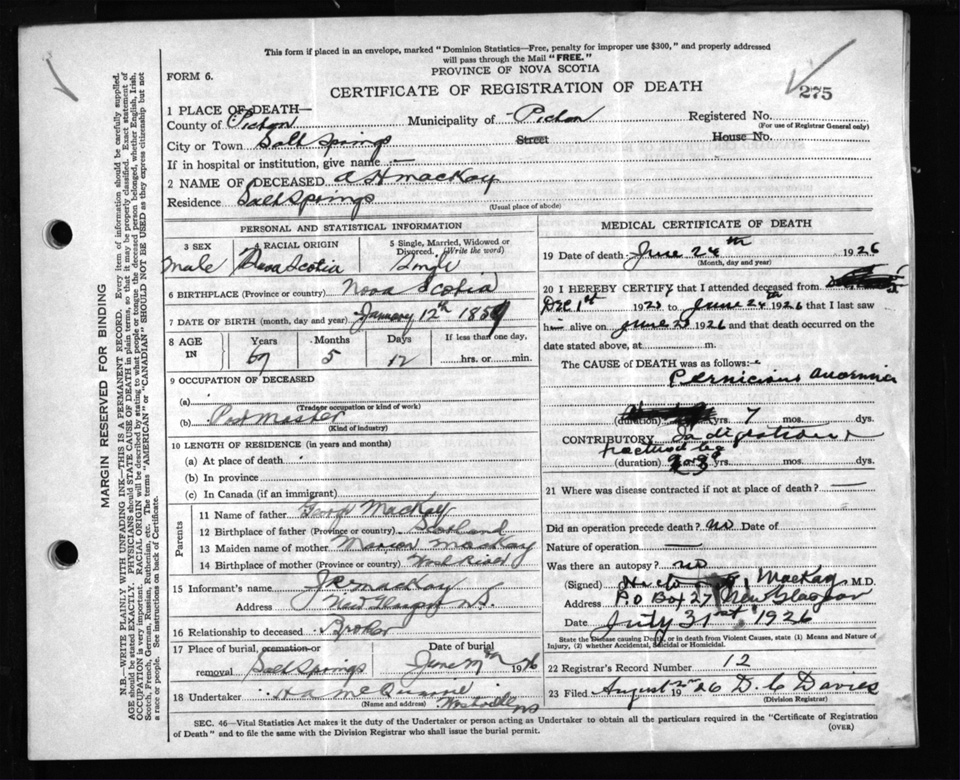 This form if placed in an envelope, marked "Dominion Statistics—Free, penalty for improper use $300," and properly addressed
will pass through the Mail "FREE."
FORM 6.
PROVINCE OF NOVA SCOTIA
CERTIFICATE OF REGISTRATION OF DEATH
275
1 PLACE OF DEATH—
County of Pictou Municipality of Pictou Registered No.
(For use of Registrar General only)
City or Town Salt Springs Street House No.
If in hospital or institution, give name —
2 NAME OF DECEASED A H MacKay
Residence Salt Springs
(Usual place of abode)
PERSONAL AND STATISTICAL INFORMATION
3 SEX 4 RACIAL ORIGIN 5 Single, Married, Widowed or
Divorced. (Write the word)
Male Nova Scotia Single
6 BIRTHPLACE (Province or country) Nova Scotia
7 DATE OF BIRTH (month, day and year) January 12th 1859
8 AGE IN Years Months Days If less than one day,
67 5 12 hrs. or min.
9 OCCUPATION OF DECEASED
(a)
(Trade or occupation or kind of work)
(b) Post Master
(Kind of industry)
10 LENGTH OF RESIDENCE (in years and months)
(a) At place of death
(b) In province
(c) In Canada (if an immigrant)
Parents
11 Name of father George MacKay
12 Birthplace of father (Province or country) Scotland
13 Maiden name of mother MacKay
14 Birthplace of mother (Province or country) West River
15 Informant's name MacKay
Address New Glasgow N.S.
16 Relationship to deceased Brother
17 Place of burial, cremation or Date of burial
removal Salt Springs June 1926
18 Undertaker
(Name and address) Westville NS
MEDICAL CERTIFICATE OF DEATH
19 Date of death June 24th 1926
(Month, day and year)
20 I HEREBY CERTIFY that I attended deceased from
Dec 1st 192 to June 24th 1926 that I last saw
him alive on June 1926 and that death occurred on the
date stated above, at m.
The CAUSE of DEATH was as follows:—
Pernicious Anaemia
(duration) yrs. 7 mos. dys.
CONTRIBUTORY Indigestion
(duration) yrs. mos. dys.
21 Where was disease contracted if not at place of death? —
Did an operation precede death? No Date of
Nature of operation —
Was there an autopsy? No
(Signed) MacKay M.D.
Address P O Box 27 New Glasgow
Date July 31st 1926
State the Disease causing Death, or in death from Violent Causes, state (1) Means and Nature of
Injury, (2) whether Accidental, Suicidal or Homicidal.
22 Registrar's Record Number 12
23 Filed August 2nd 1926 D. C Davies
(Division Registrar)
SEC. 46—Vital Statistics Act makes it the duty of the Undertaker or person acting as Undertaker to obtain all the particulars required in the "Certificate of Registration
of Death" and to file the same with the Division Registrar who shall issue the burial permit.
(OVER)
MARGIN RESERVED FOR BINDING
N.B.—WRITE PLAINLY WITH UNFADING INK—THIS IS A PERMANENT RECORD. Every item of information should be carefully supplied.
AGE should be stated EXACTLY. PHYSICIANS should STATE CAUSE OF DEATH in plain terms, so that it may be properly classified. Exact statement of
OCCUPATION is very important. RACIAL ORIGIN will be described by stating to what people or tongue the deceased person belonged, whether English, Irish,
Scotch, French, German, Russian, Ruthenian, etc. The terms "AMERICAN" or "CANADIAN" SHOULD NOT BE USED as they express citizenship but not
a race or people. See instructions on back of Certificate.